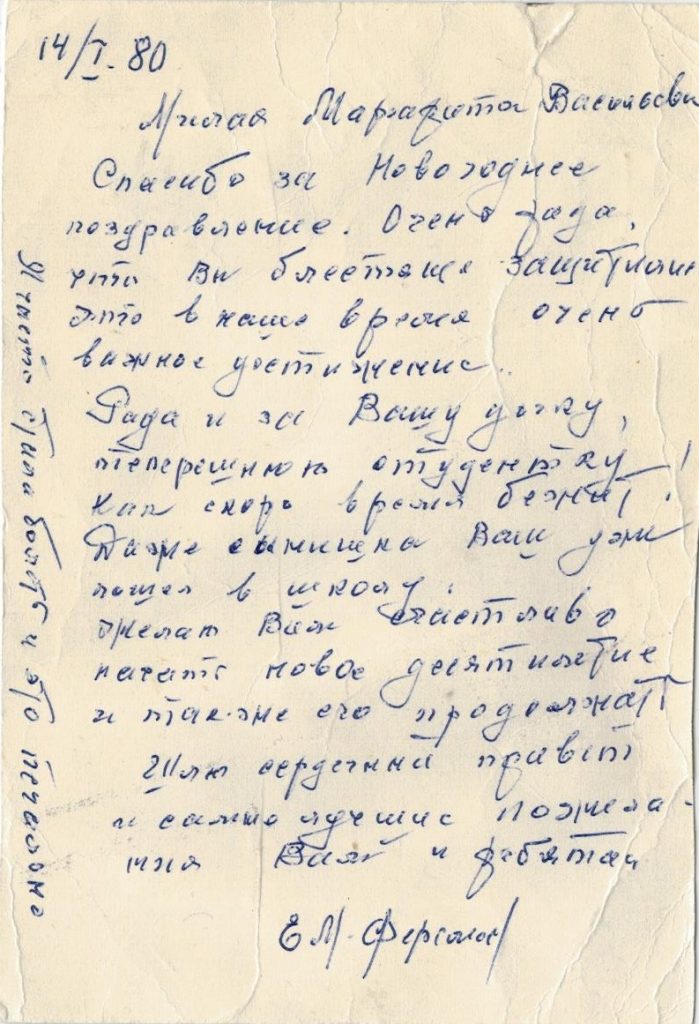 14/I. 80
Милая Маргарита Васильевн
Спасибо за Новогоднее
поздравление. Очень рада,
что Вы блестяще защитили
это в наше время очень
важное достижение..
Рада и за Вашу дочку,
теперешнюю студентку!
Как скоро время бежит!
Даже сынишка Ваш уже
пошел в школу.
Желаю Вам счастливо
начать новое десятилетие
и так-же его продолжать
Шлю сердечный привет
и самые лучшие пожела-
ния Вам и ребятам
Е М.
Я часто стала болеть и это печально